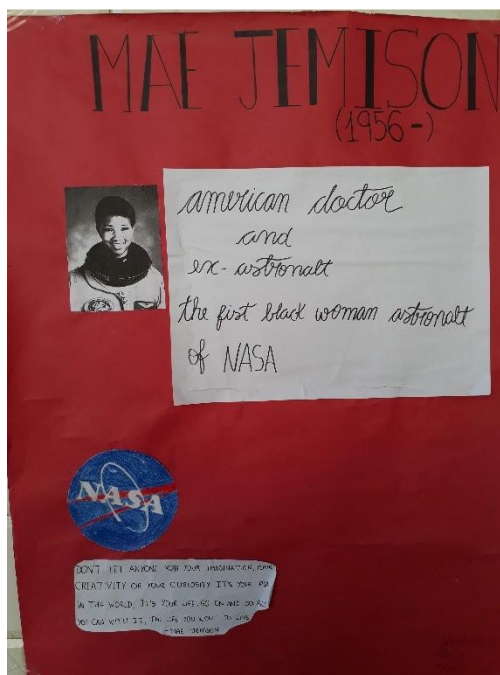 MAE JEMISON
(1956-)
american doctor
and
ex-astronalt
the fist black woman astronalt
of NASA
NASA
DON'T LET ANYONE ROB YOUR IMAGINATION, YOUR
CREATIVITY OR YOUR CURIOSITY ITS YOUR
IN THE WORLD, IT'S YOUR LIFE. GO ON AND DO ALL
YOU CAN WITH IT, THE LIFE YOU WANT TO LIVE
-MAE JEMISON